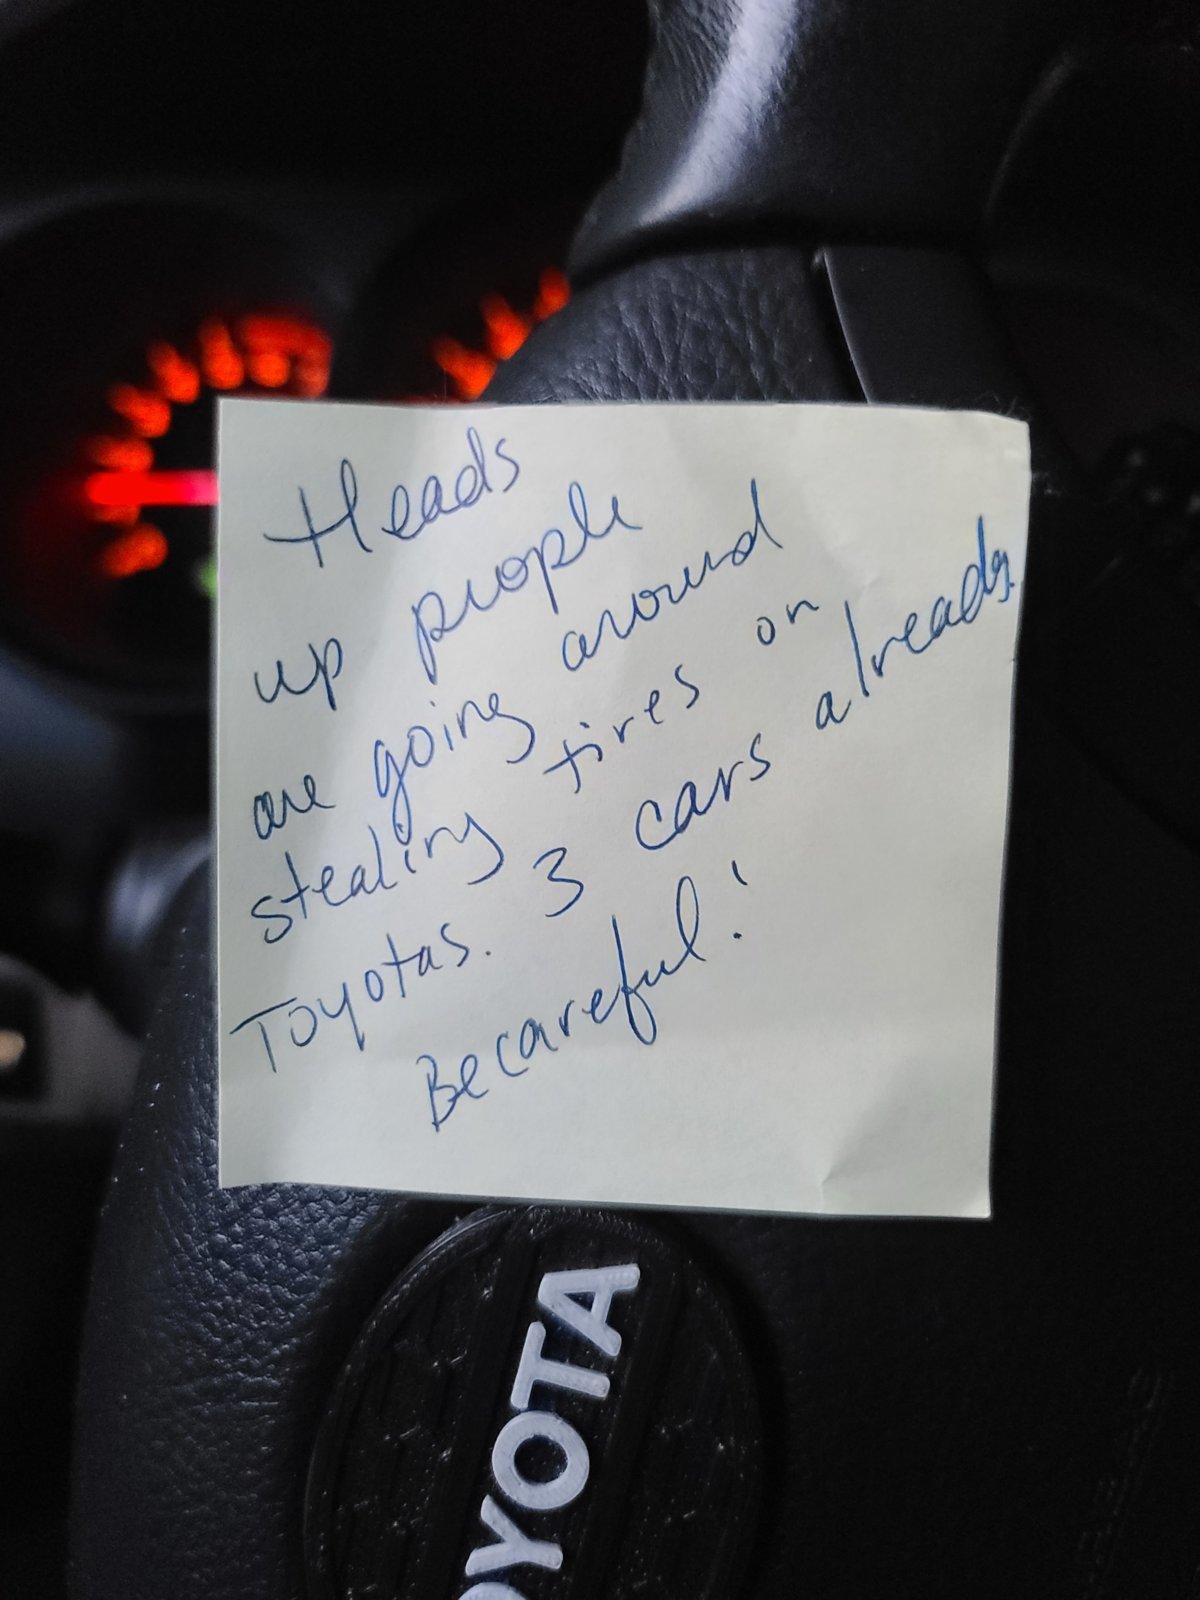 Heads
up people
are going around
stealing tires on
Toyotas. 3 cars already.
Becareful!
TOYOTA